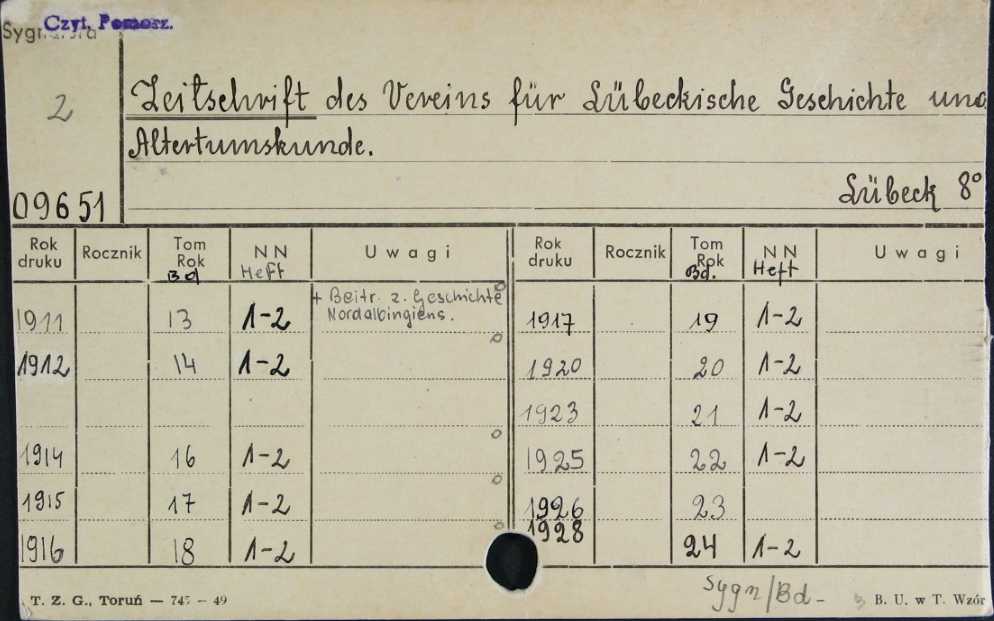 Czyt. Pomorz.
Sygnatura
2
Zeitschrift des Vereins für Lübeckische Geschichte und
Altertumskunde.
09651
Lübeck 8°
Rok druku Rocznik Tom Rok Bd NN Heft Uwagi Rok druku Rocznik Tom Rok Bd. NN Heft Uwagi
+ Beitr. z. Geschichte
Nordalbingiens.
1911 13 1-2 1917 19 1-2
1912 14 1-2 1920 20 1-2
1923 21 1-2
1914 16 1-2 1925 22 1-2
1915 17 1-2 1926 23
1916 18 1-2 1928 24 1-2
Sygn/Bd-
T. Z. G., Toruń — 745 — 49
B. U. w T. Wzór